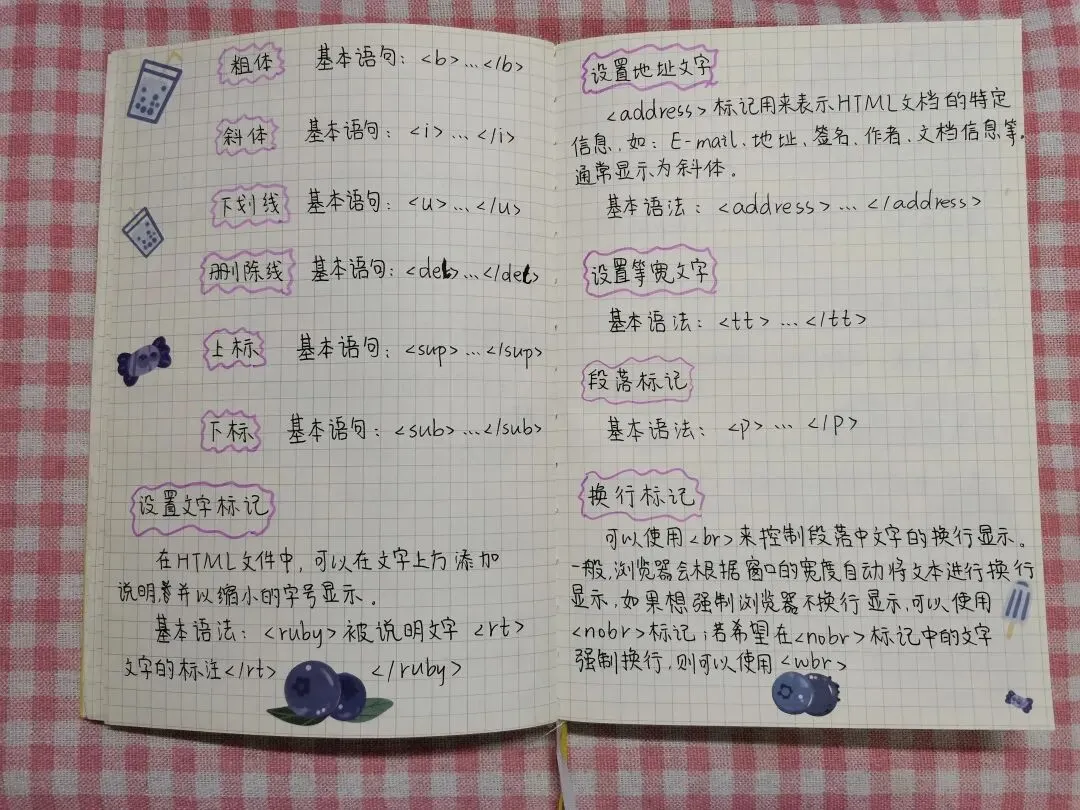 粗体 基本语句：<b>…</b>
斜体 基本语句：<i>…</i>
下划线 基本语句：<u>…</u>
删除线 基本语句：<del>…</del>
上标 基本语句：<sup>…</sup>
下标 基本语句：<sub>…</sub>
设置文字标记
在HTML文件中，可以在文字上方添加
说明，并以缩小的字号显示。
基本语法：<ruby>被说明文字 <rt>
文字的标注</rt> </ruby>
设置地址文字
<address>标记用来表示HTML文档的特定
信息，如：E-mail、地址、签名、作者、文档信息等，
通常显示为斜体。
基本语法：<address>…</address>
设置等宽文字
基本语法：<tt>…</tt>
段落标记
基本语法：<p>…</p>
换行标记
可以使用<br>来控制段落中文字的换行显示。
一般，浏览器会根据窗口的宽度自动将文本进行换行
显示，如果想强制浏览器不换行显示，可以使用
<nobr>标记；若希望在<nobr>标记中的文字
强制换行，则可以使用<wbr>